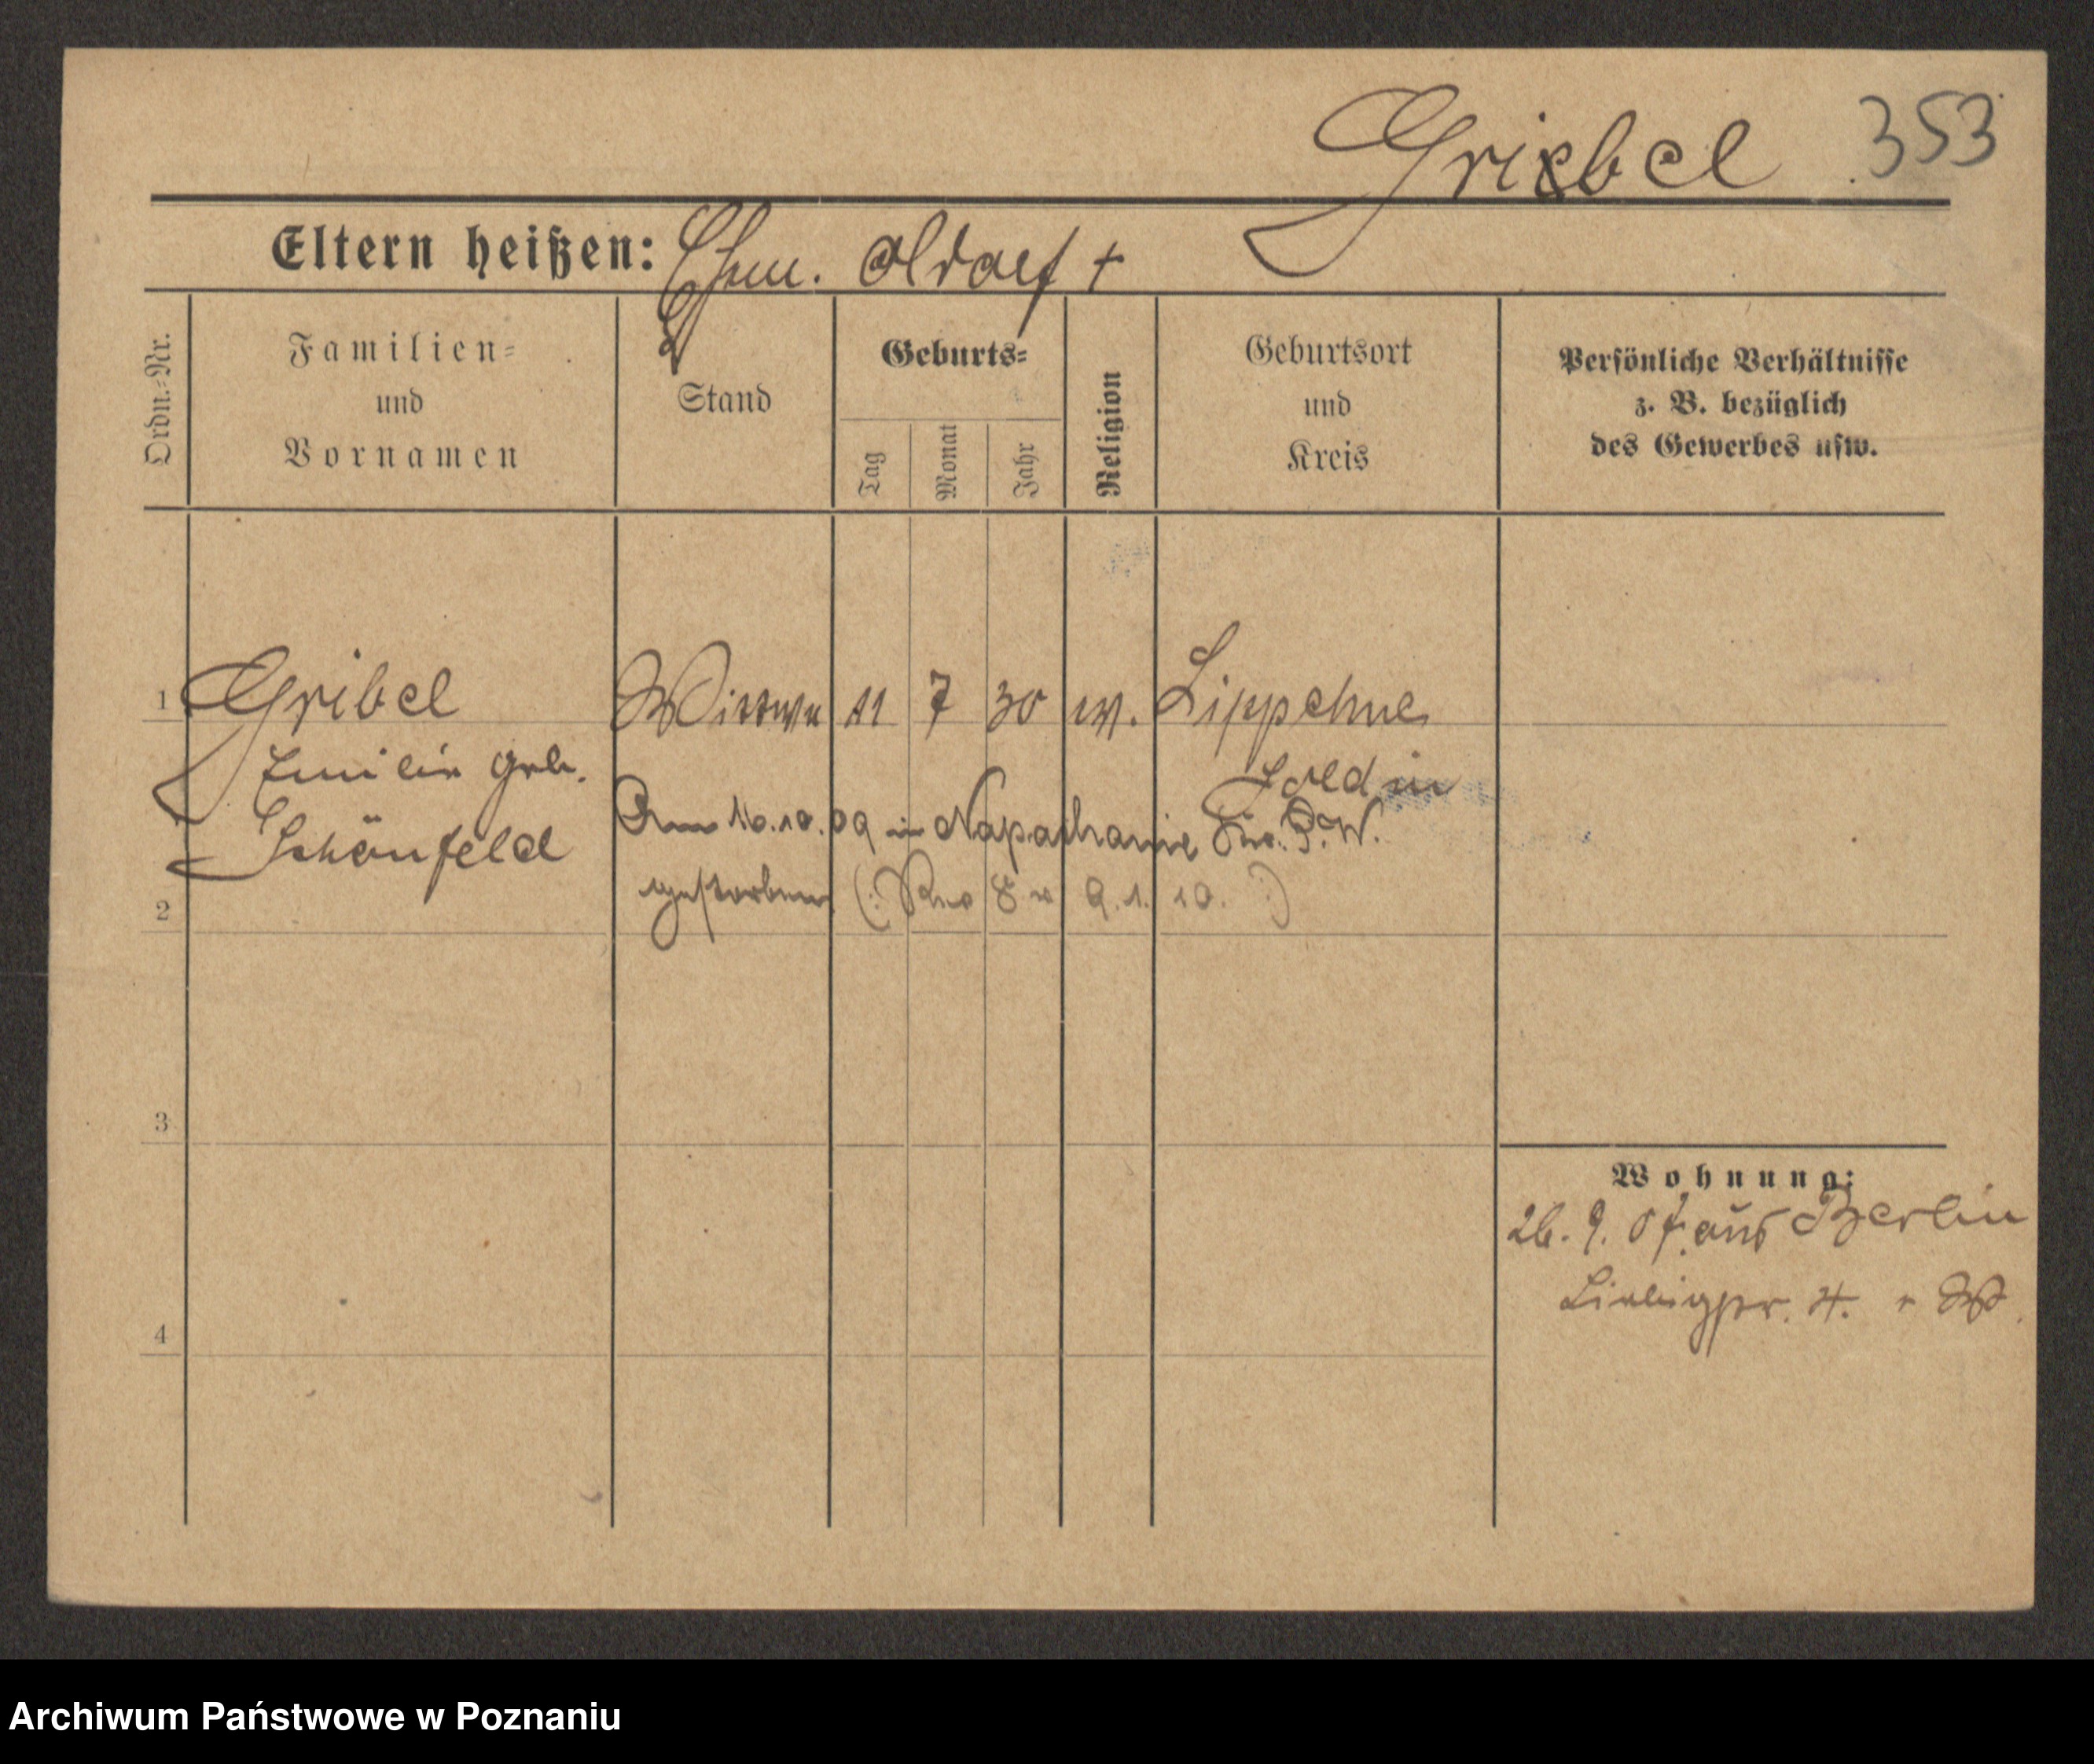 Griebel 353
Eltern heißen: Ehem. Adolf +
Ordn.-Nr.
Familien-
und
Vornamen
Stand
Geburts-
Tag
Monat
Jahr
Religion
Geburtsort
und
Kreis
Persönliche Verhältnisse
z. B. bezüglich
des Gewerbes usw.
1 Gribel Wittwe 11 7 30 ev. Lippehne
Emilie geb. Soldin
Schönfeld
Am 16.10.09 in Napachanie Krs. P. W.
2 gestorben (: 9.1.10. :)
3
4
Wohnung:
26. 9. 07. aus Berlin
Archiwum Państwowe w Poznaniu